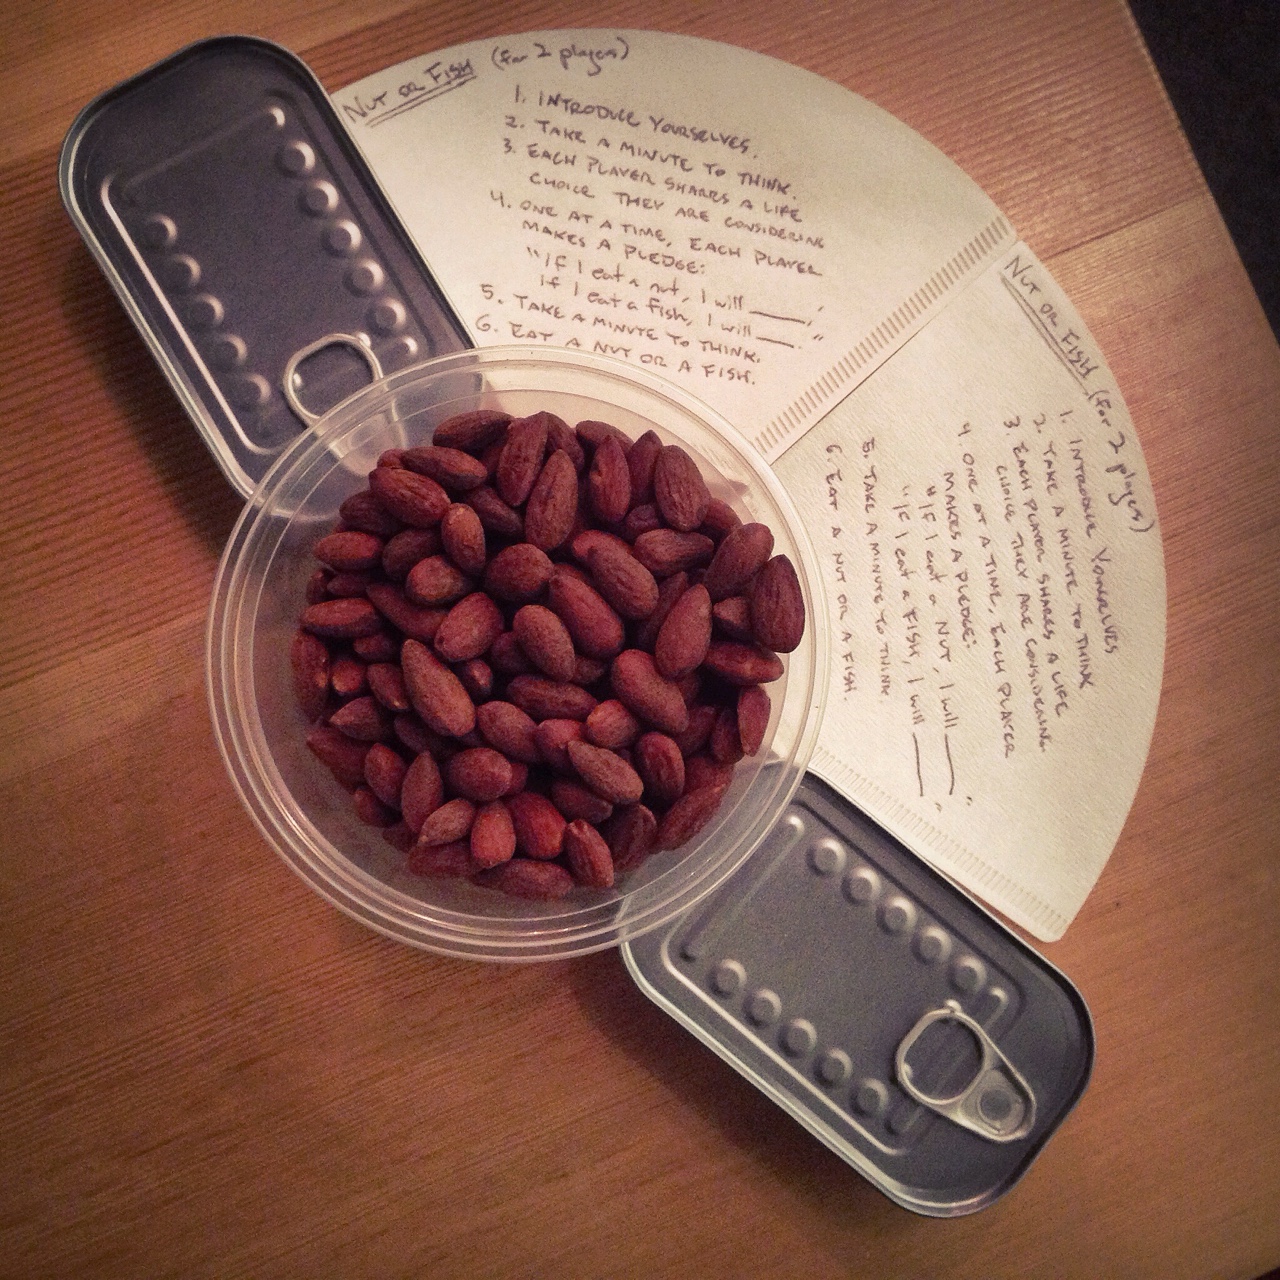 NUT OR FISH (for 2 players)
1. INTRODUCE YOURSELVES.
2. TAKE A MINUTE TO THINK.
3. EACH PLAYER SHARES A LIFE
CHOICE THEY ARE CONSIDERING
4. ONE AT A TIME, EACH PLAYER
MAKES A PLEDGE:
"If I eat a nut, I will ____,
If I eat a fish, I will ____."
5. TAKE A MINUTE TO THINK.
6. EAT A NUT OR A FISH.
NUT OR FISH (for 2 players)
1. INTRODUCE YOURSELVES
2. TAKE A MINUTE TO THINK
3. EACH PLAYER SHARES A LIFE
CHOICE THEY ARE CONSIDERING.
4. ONE AT A TIME, EACH PLAYER
MAKES A PLEDGE:
"If I eat a NUT, I will ____
"If I eat a FISH, I will ____"
5. TAKE A MINUTE TO THINK.
6. EAT A NUT OR A FISH.